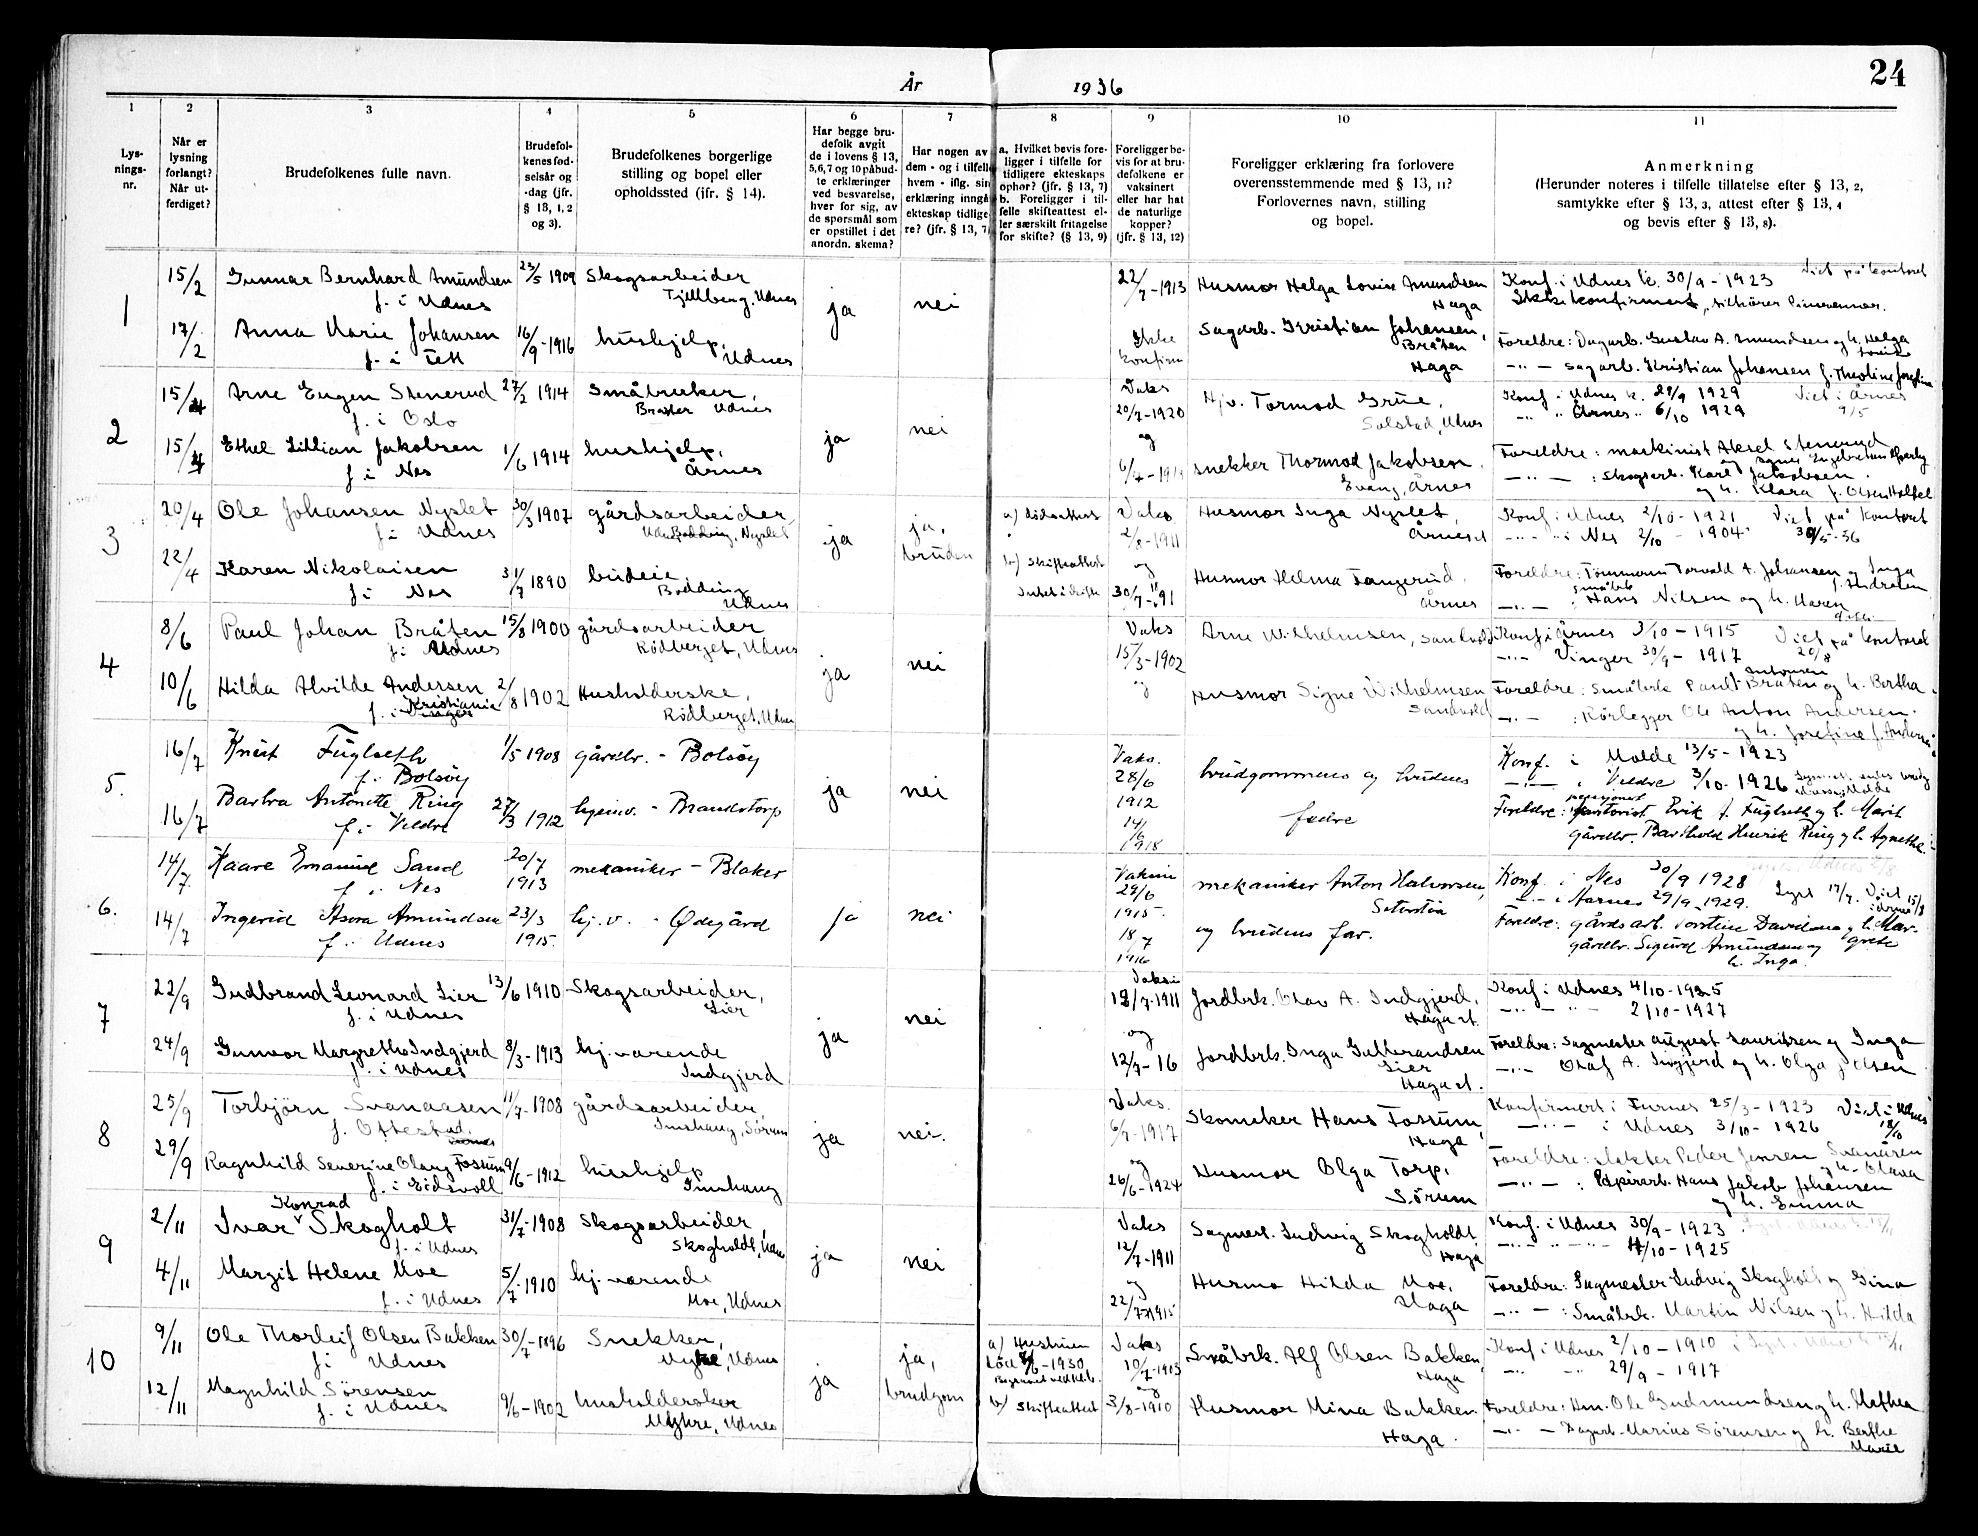 24
År 1936
1 2 3 4 5 6 7 8 9 10 11
Lys-
nings-
nr.
Når er
lysning
forlangt?
Når ut-
ferdiget?
Brudefolkenes fulle navn.
Brudefol-
kenes fød-
selsår og
-dag (jfr.
§ 13, 1, 2
og 3).
Brudefolkenes borgerlige
stilling og bopel eller
opholdssted (jfr. § 14).
Har begge bru-
defolk avgit
de i lovens § 13,
5,6,7 og 10 påbud-
te erklæringer
ved besvarelse,
hver for sig, av
de spørsmål som
er opstillet i det
anordn. skema?
Har nogen av
dem - og i tilfelle
hvem - iflg. sin
erklæring inngå
ekteskap tidlige-
re? (jfr. § 13, 7)
a. Hvilket bevis fore-
ligger i tilfelle for
tidligere ekteskaps
ophør? (jfr. § 13, 7)
b. Foreligger i til-
felle skifteattest el-
ler særskilt fritagelse
for skifte? (§ 13, 9)
Foreligger be-
vis for at bru-
defolkene er
vaksinert
eller har hat
de naturlige
kopper?
(jfr. § 13, 12)
Foreligger erklæring fra forlovere
overensstemmende med § 13, 11?
Forlovernes navn, stilling
og bopel.
Anmerkning
(Herunder noteres i tilfelle tillatelse efter § 13, 2,
samtykke efter § 13, 3, attest efter § 13, 4
og bevis efter § 13, 8).
1
15/2 Gunnar Bernhard Amundsen 23/5 1909 Skogsarbeider
f. i Udnes Tjellberg, Udnes
ja nei
22/7-1913 Husmor Helga Lovise Amundsen
Haga
Konf. i Udnes k. 30/9-1923 Viet på kontoret
Ikke konfirmert, tilhører Pinsevennes.
17/2 Anna Marie Johansen 16/9-1916 hushjelp,
f. i Fett Udnes
Ikke
konfirm
Sagarb. Kristian Johansen,
Bråten
Haga
Foreldre: Dagarb. Gustav A. Amundsen og h. Helga
Lovise
-"- sagarb. Kristian Johansen f. Theoline Josefine
2
15/4 Arne Eugen Stenerud 27/2 1914 Småbruker,
f. i Oslo Udnes
ja nei
Vaks
20/7-1920
og
Hjv. Tormod Grue,
Solstad, Udnes
Konf. i Udnes k. 29/9 1929 Viet i Årnes
" " Årnes " 6/10 1929 9/5
15/4 Ethel Lillian Jakobsen 1/6 1914 hushjelp,
f. i Nes Årnes
snekker Thormod Jakobsen
Evang, Årnes
Foreldre: maskinist Aksel Stenerud
-"- : skogsarb. Karl Jakobsen
og h. Klara f. Olsen
3
20/4 Ole Johansen Nyslet 30/3 1907 gårdsarbeider
f. i Udnes Bodding, Nyslet
ja ja,
bruden
a) Dødsattest
b) Skifteattest
Vaks
2/8-1911
og
30/7-91
Husmor Inga Nyslet,
Årnes st
Konf. i Udnes 2/10-1921 Viet på kontoret
" " i Nes 2/10-1904 30/5-36
22/4 Karen Nikolaisen 31/7 1890 budeie
f. i Nes Bodding
Udnes
Husmor Helma Tangerud,
Årnes
Foreldre: Tømmerm Torvald A. Johansen og Inga
-"- : Hans Nilsen og h. Maren
4
8/6 Paul Johan Bråten 15/8 1900 gårdsarbeider
f. i Udnes Rødberget, Udnes
ja nei
Vaks
15/3-1902
og
Arne Wilhelmsen, Sandvold
Konf. i Årnes 3/10-1915 Viet på kontoret
-"- Vinger 30/9-1917 20/8
10/6 Hilda Alvilde Andersen 2/8 1902 Husholderske,
f. i Kristiania Rødberget, Udnes
Husmor Signe Wilhelmsen
Sandvold
Foreldre: Småbrk Paul Antonsen Bråten og h. Bertha
-"- : Rørlegger Ole Anton Andersen
og h. Josefine f. Andersen
5.
16/7 Knut Fuglseth 1/5 1908 gårdbr. - Bolsøy
f. i Bolsøy
ja nei
Vaks.
28/6
1912
14/6
1918
brudgommens og brudens
fedre
Konf. i Molde 13/5-1923
-"- i Veldre 3/10-1926
16/7 Barbra Antonette Ring 27/3 1912 hjemv. - Brandstorp
f. i Veldre
Foreldre: pensjonist Erik J. Fuglseth og h. Marit
gårdbr. Barthold Henrik Ring og h. Agnethe.
6.
14/7. Kaare Emanuel Sand 20/7 1913 mekaniker - Blaker
f. i Nes
ja nei
Vaksin
29/6
1915.
18/7
1916
mekaniker Anton Halvorsen,
og brudens far.
Konf. i Nes 30/9 1928 Lyst 17/7. Viet 15/8
-"- i Aarnes 29/9-1929. i Årnes
14/7 Ingerid Asora Amundsen 23/3 1915. hj.v. - Ødegård
f. i Udnes
Foreldre: gårdsarb. Torstein Davidsen og h. Mar-
grete
gårdbr. Sigurd Amundsen og
h. Inga.
7
22/9 Gudbrand Leonard Lier 13/6 1910 Skogsarbeider,
f. i Udnes Lier
ja nei
Vaksi
12/7-1911
og
12/7-16
Jordbrk. Olav A. Indgjerd,
Haga st.
Konf. i Udnes 4/10-1925
-"- " - 2/10-1927
24/9 Gunvor Margrethe Indgjerd 8/3-1913 hj. værende
f. i Udnes Indgjerd
Jordbrk. Inga Gulbrandsen
Lier
Haga st.
Foreldre: Sagmester August Lauritsen og Inga
-"- Olaf A. Ingjerd og h. Olga f. Olsen
8
25/9 Torbjørn Svenaasen 11/7-1908 gårdsarbeider,
f. Ottestad Imshaug, Sørum
ja nei.
Vaks.
6/7-1917
og
26/6-1924
Skomaker Hans Fossum,
Haga
Konfirmert i Furnes 25/3-1923 Viet i Udnes
-"- i Udnes 3/10-1926 18/10
29/9 Ragnhild Severine Olaug Fossum 9/6-1912 hushjelp
f. i Eidsvoll Imshaug
Husmor Olga Torp,
Sørum
Foreldre: Slakter Peder Jensen Svenåsen
og h. Olava
-"- : Papirarb. Hans Jakob Johansen
og h. Emma
9
2/11 Ivar Konrad Skogholt 31/7-1908 Skogsarbeider,
f. i Udnes Skogholdt, Udnes
ja nei
Vaks
12/7-1911
og
22/7-1915
Sagmest. Ludvig Skogholdt,
Haga
Konf. i Udnes 30/9-1923
-"- " - 4/10-1925
4/11 Margit Helene Moe 5/7-1910 hj. værende
f. i Udnes Moe, Udnes
Husmo Hilda Moe,
Haga
Foreldre: Sagmester Ludvig Skogholt og Gina
-"- : Småbrk. Martin Nilsen og h. Hilda
10
9/11 Ole Thorleif Olsen Bakken 30/7-1896 Snekker,
f. i Udnes Myhre, Udnes
ja ja,
brudgom
a) Hustruen
død 8/6-1930
b) Skifteattest
Vaks
10/7-1903
og
3/8-1910
Småbrk. Alf Olsen Bakken,
Haga
Konf. i Udnes 2/10-1910
" " 29/9-1917
12/11 Magnhild Sørensen 9/6-1902 husholderske
f. i Udnes Myhre, Udnes
Husmor Mina Bakken
Haga.
Foreldre: Hm. Ole Gudmundsen og h. Mathea
-"- Dagarb. Marius Sørensen og h. Berthe
Marie